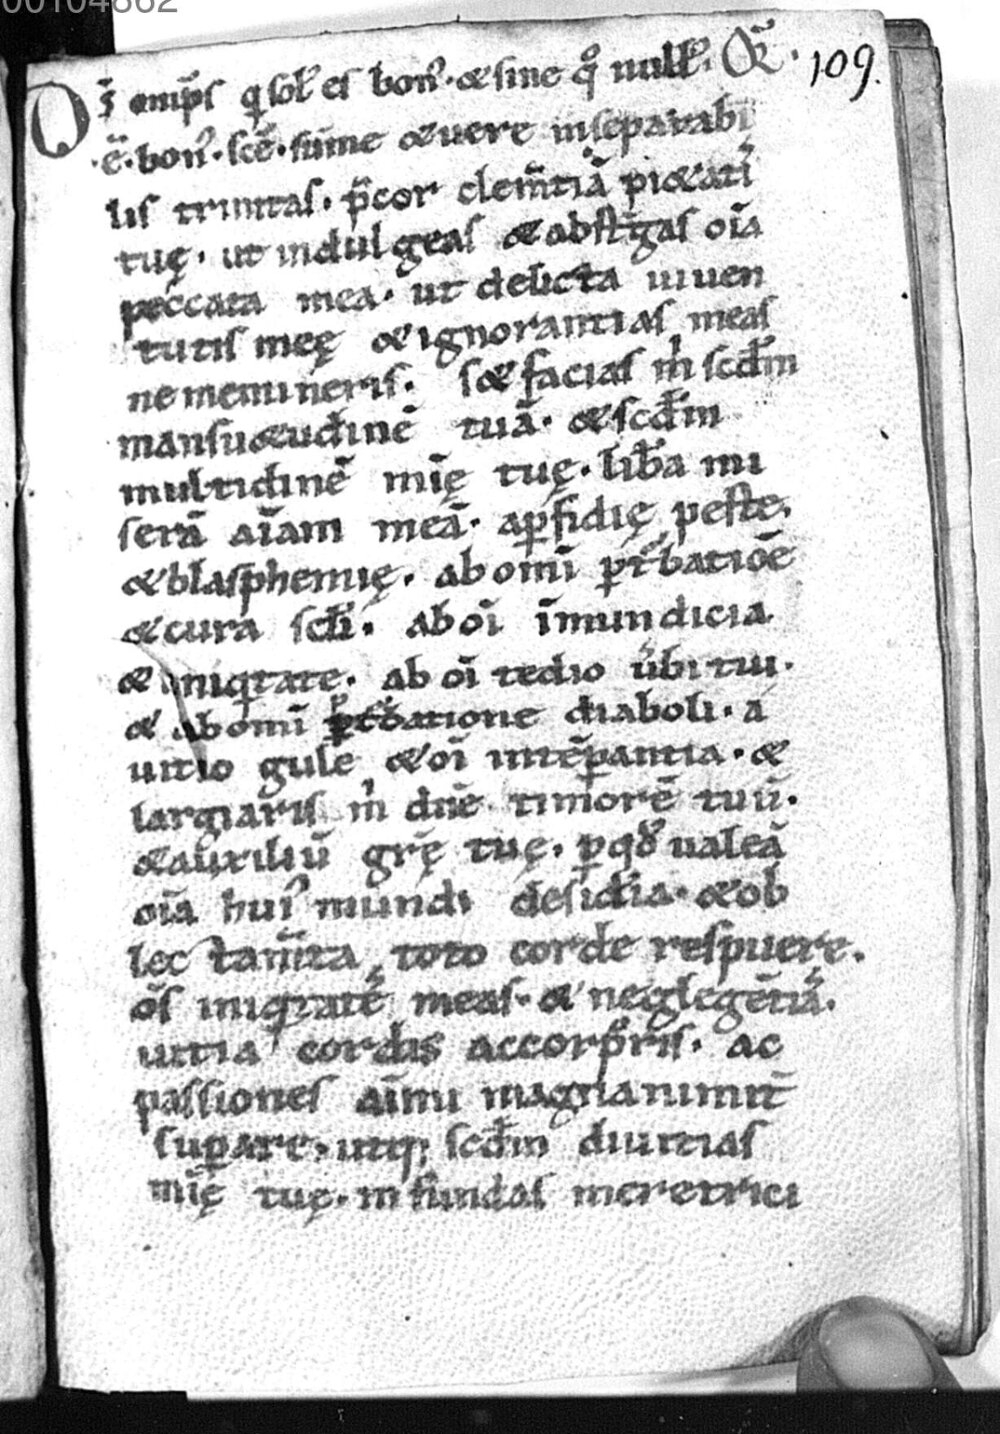 00104862
Ds̄ omp̄s q sol' es bon'. & sine qͦ null'. OR̄. 109.
ē. bon'. scē. sūme & uere inseparabi
lis trinitas. p̄cor clem̄tiā pi&ati'
tuę. ut indulgeas & abst̄gas oīa
peccata mea. ut delicta iuuen
tutis meę & ignorantias meas
ne memineris. s& facias m̄ scđm
mansu&uđinē tuā. & scđm
multidinē mīę tuę. lib̄a mi
serā aīam meā. a ꝑfidię peste.
& blasphemię. ab om̄i ꝑt'batiōe
& cura scłi. ab oī īmundicia
& iniqtate. ab oī tedio ūbi tui.
& ab omni ꝑt'batione diaboli. a
uitio gule & oī intēꝑantia. &
largiaris m̄ dn̄e timorē tuū.
& auxiliū gr̄ę tuę. ꝑ qđ ualeā
oīa hui' mundi desidia. & ob
lectam̄ta toto corde respuere.
ōs iniqtatē meas. & neglegētiā.
uitia cordis ac corp̄ris. ac
passiones aīmi magnanimit̄
suꝑare. utq; scđm diuitias
mīę tuę. infundas meretrici